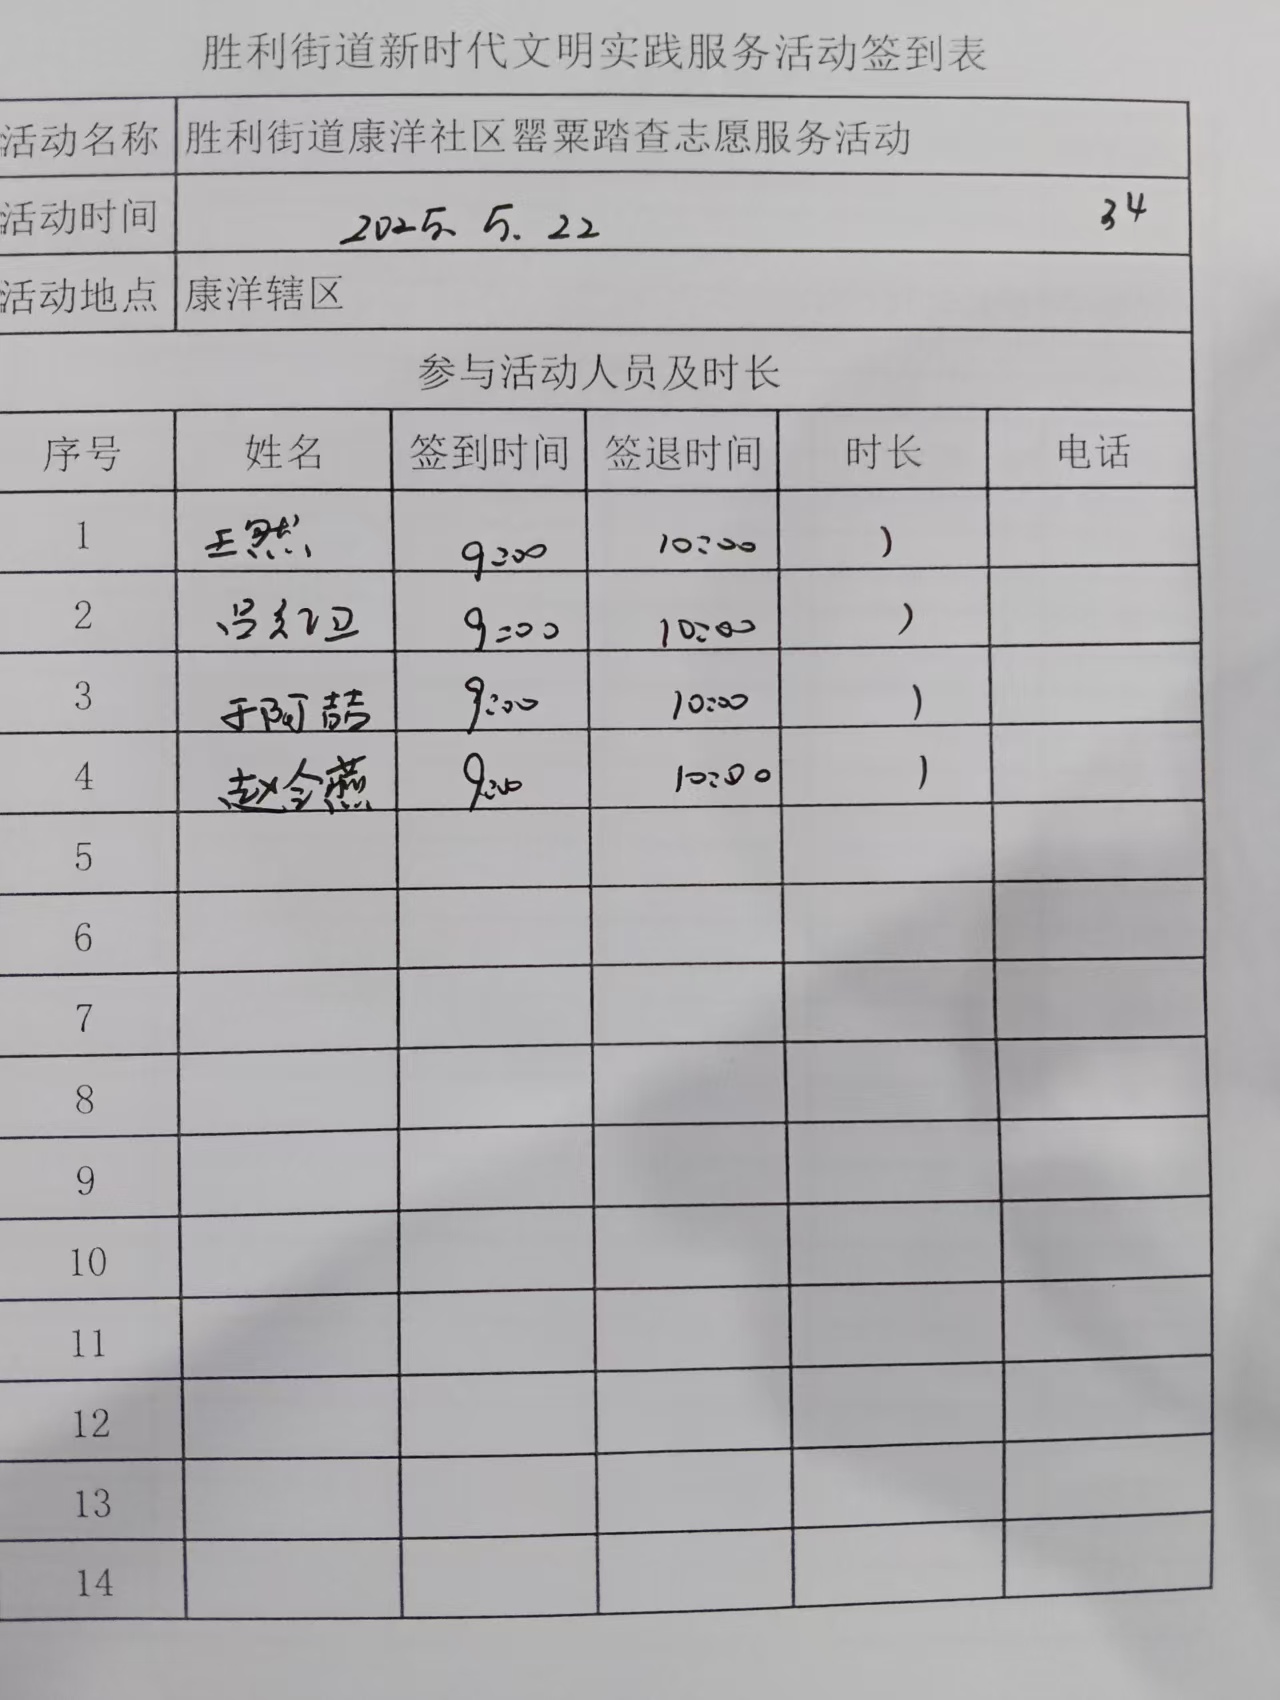 胜利街道新时代文明实践服务活动签到表
活动名称 胜利街道康洋社区罂粟踏查志愿服务活动
34
活动时间 2025. 5. 22
活动地点 康洋辖区
参与活动人员及时长
序号 姓名 签到时间 签退时间 时长 电话
1 王然 9:00 10:00 )
2 吕红卫 9:00 10:00 )
3 于阿喆 9:00 10:00 )
4 赵今燕 9:00 10:00 )
5
6
7
8
9
10
11
12
13
14